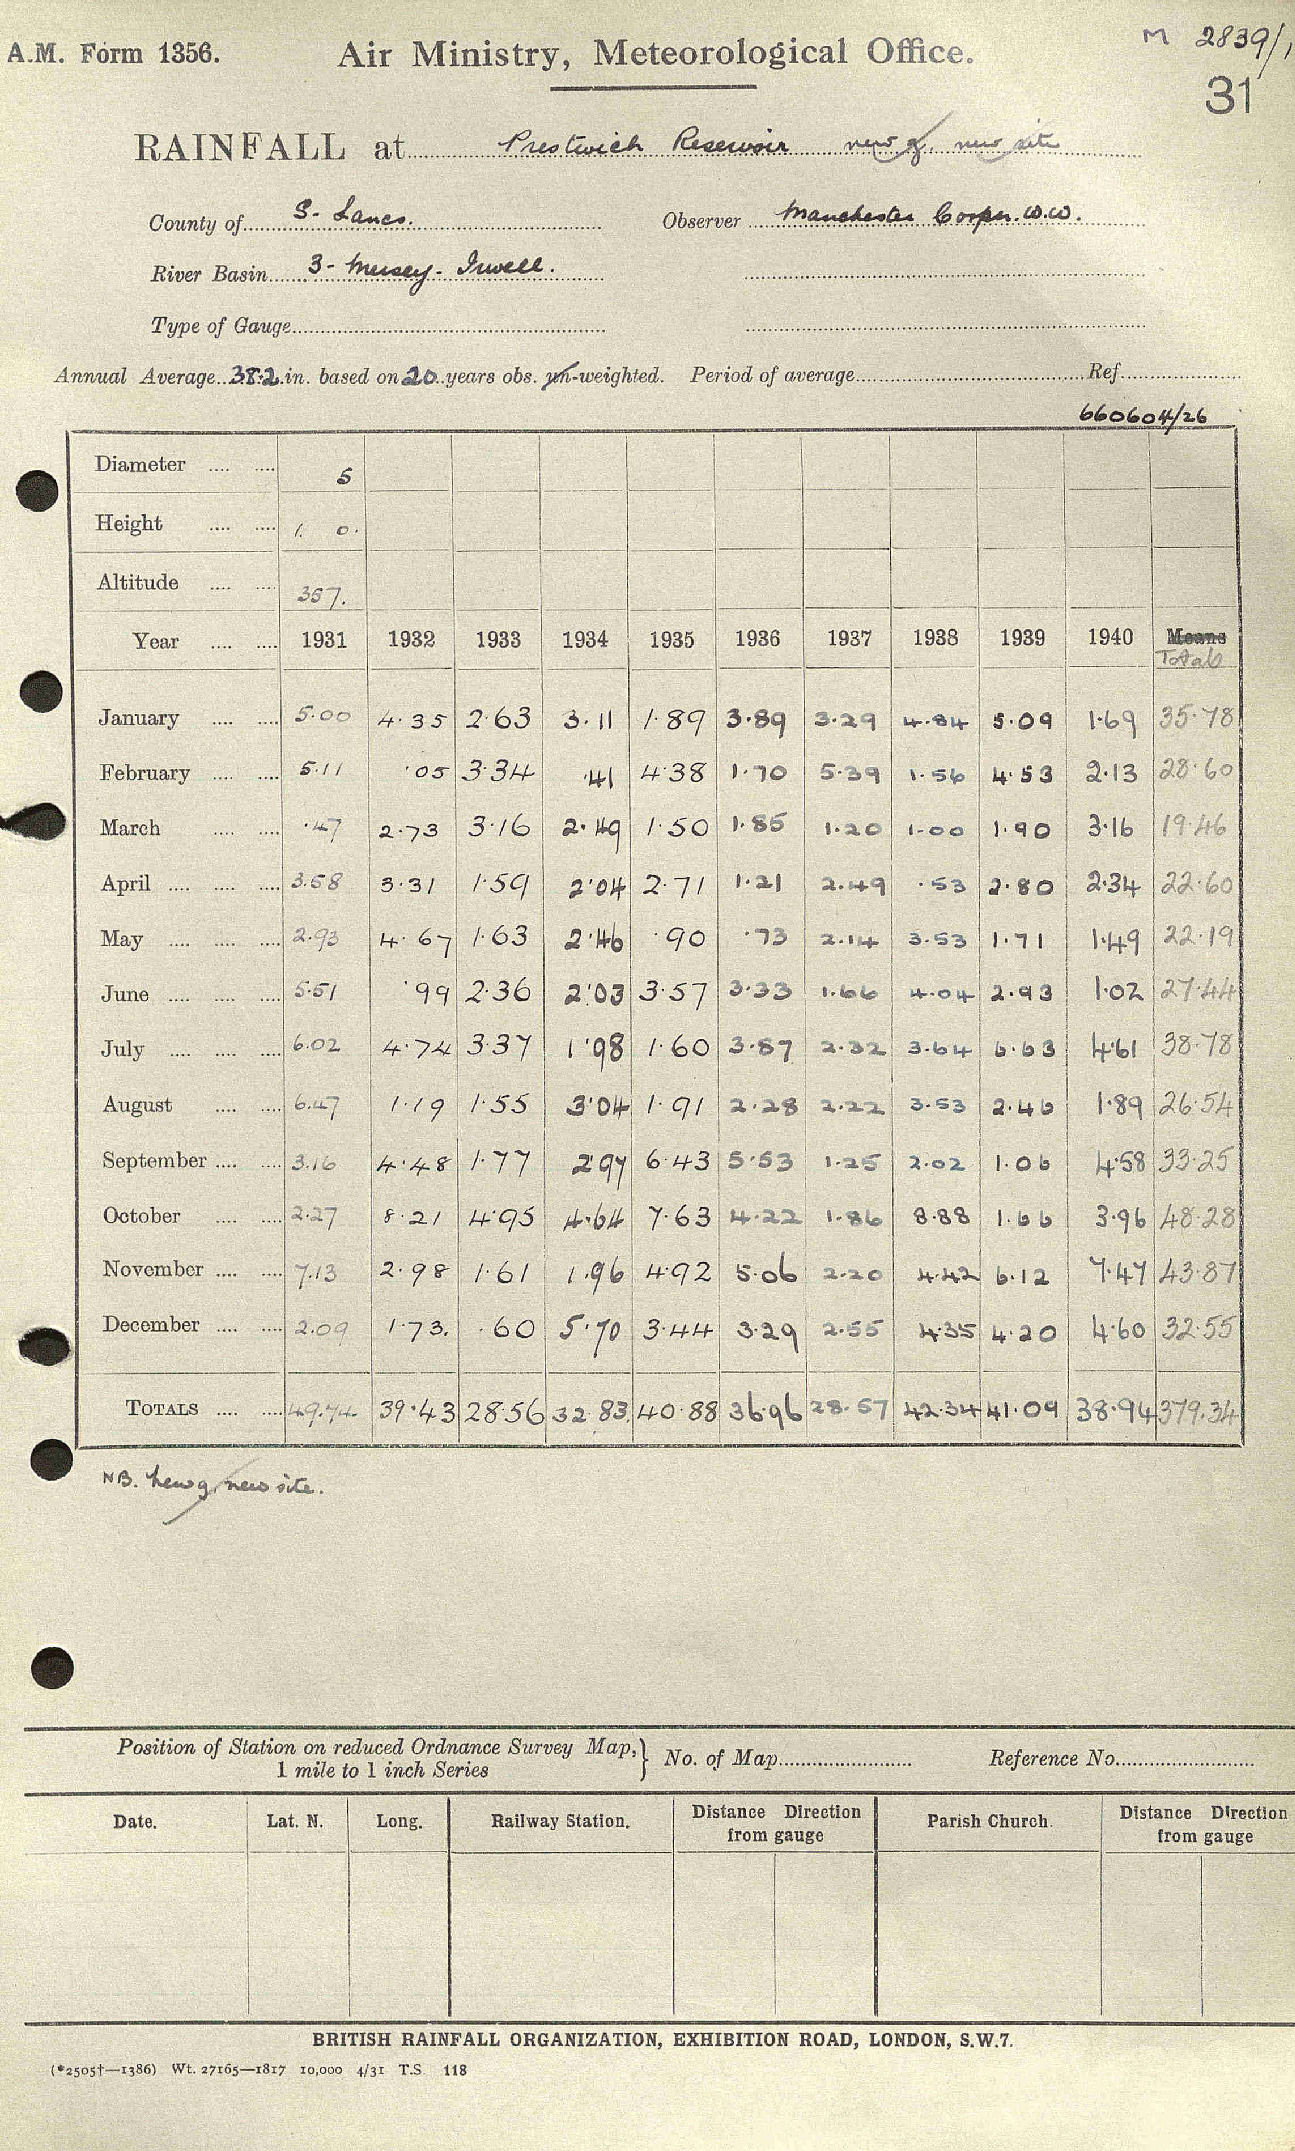 M 2839/1
A.M. Form 1356. Air Ministry, Meteorological Office.
31
RAINFALL at Prestwich Reservoir new g. new site
County of S. Lancs. Observer Manchester Corpn. W.W.
River Basin 3 - Mersey - Irwell.
Type of Gauge
Annual Average 38.2 in. based on 20 years obs. un-weighted. Period of average Ref.
660604/26
Diameter .... .... 5
Height .... .... 1. 0.
Altitude .... .... 357.
Year .... .... 1931 1932 1933 1934 1935 1936 1937 1938 1939 1940 Means
Totals
January .... .... 5.00 4.35 2.63 3.11 1.89 3.89 3.29 4.84 5.09 1.69 35.78
February .... .... 5.11 .05 3.34 .41 4.38 1.70 5.39 1.56 4.53 2.13 28.60
March .... .... .47 2.73 3.16 2.49 1.50 1.85 1.20 1.00 1.90 3.16 19.46
April .... .... .... 3.58 3.31 1.59 2.04 2.71 1.21 2.49 .53 2.80 2.34 22.60
May .... .... .... 2.93 4.67 1.63 2.46 .90 .73 2.14 3.53 1.71 1.49 22.19
June .... .... .... 5.51 .99 2.36 2.03 3.57 3.33 1.66 4.04 2.93 1.02 27.44
July .... .... .... 6.02 4.74 3.37 1.98 1.60 3.87 2.32 3.64 6.63 4.61 38.78
August .... .... 6.47 1.19 1.55 3.04 1.91 2.28 2.22 3.53 2.46 1.89 26.54
September .... .... 3.16 4.48 1.77 2.97 6.43 5.53 1.25 2.02 1.06 4.58 33.25
October .... .... 2.27 8.21 4.95 4.64 7.63 4.22 1.86 8.88 1.66 3.96 48.28
November .... .... 7.13 2.98 1.61 1.96 4.92 5.06 2.20 4.42 6.12 7.47 43.87
December .... .... 2.09 1.73. .60 5.70 3.44 3.29 2.55 4.35 4.20 4.60 32.55
TOTALS .... .... 49.74 39.43 28.56 32.83 40.88 36.96 28.57 42.34 41.09 38.94 379.34
NB. new g, new site.
Position of Station on reduced Ordnance Survey Map, } No. of Map Reference No.
1 mile to 1 inch Series
Date. Lat. N. Long. Railway Station. Distance Direction Parish Church. Distance Direction
from gauge from gauge
BRITISH RAINFALL ORGANIZATION, EXHIBITION ROAD, LONDON, S.W.7.
(*2505†—1386) Wt. 27165—1817 10,000 4/31 T.S. 118